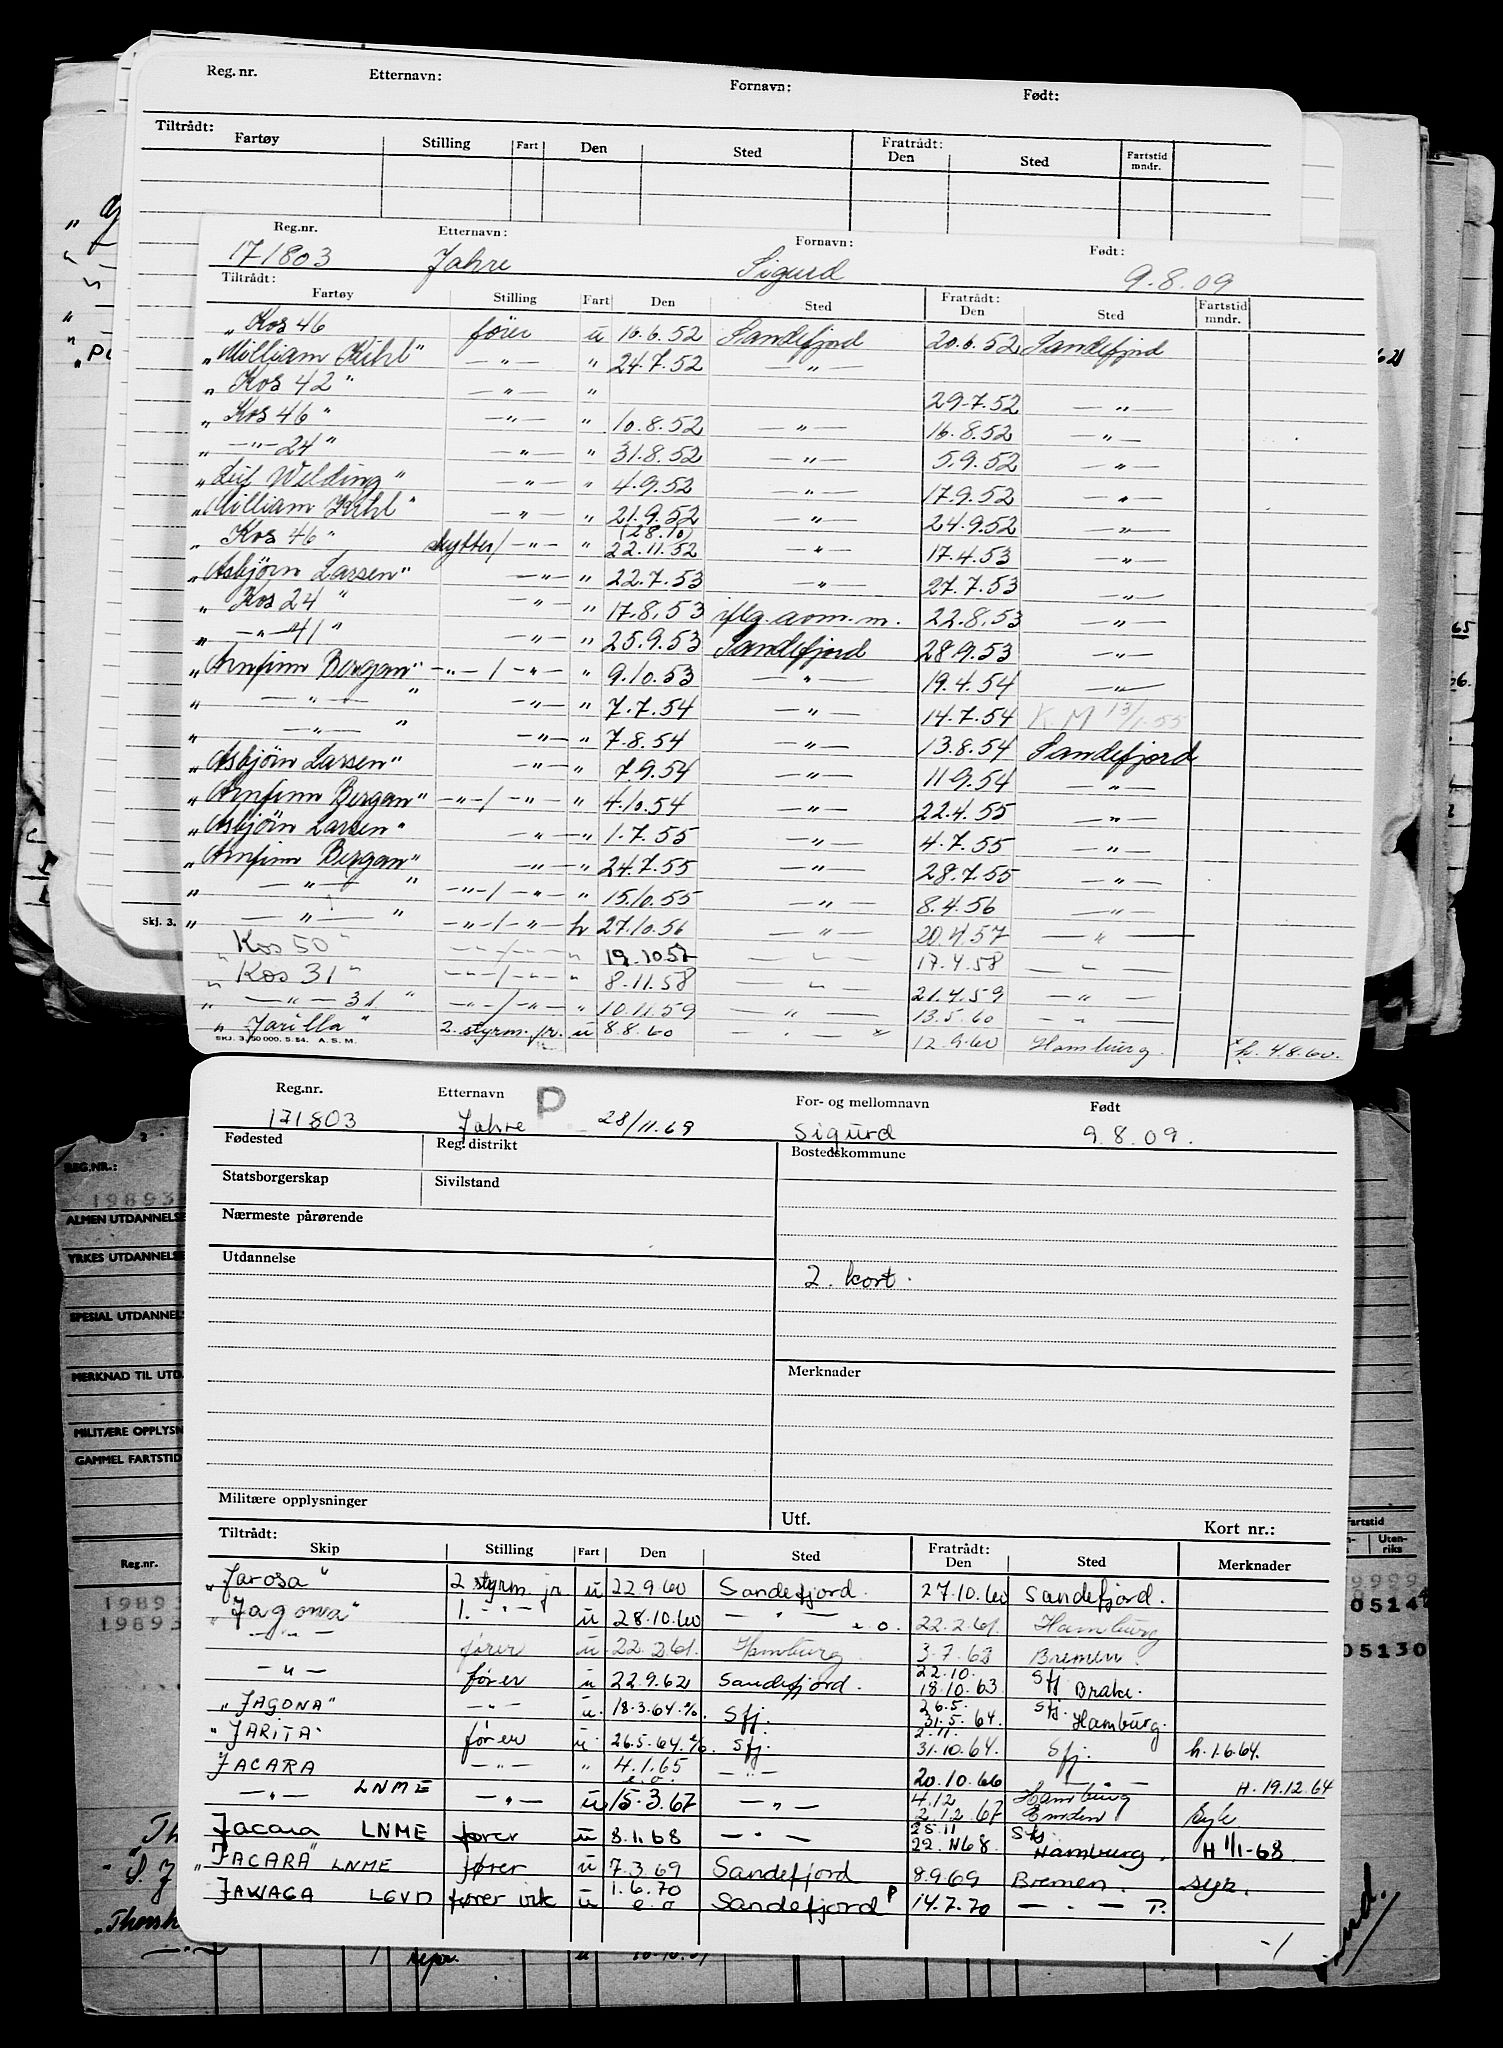 Reg. nr. Etternavn: Fornavn: Født:
Tiltrådt: Fratrådt:
Fartøy Stilling Fart Den Sted Den Sted Fartstid mndr.
Reg.nr. Etternavn: Fornavn: Født:
171803 Jahre Sigurd 9.8.09
Tiltrådt: Fratrådt:
Fartøy Stilling Fart Den Sted Den Sted Fartstid mndr.
„ Kos 46 fører u 16.6.52 Sandefjord 20.6.52 Sandefjord
„William Kihl" —"— " 24.7.52 —"—
„ Kos 42 " —"— " 29.7.52 —"—
„ Kos 46 " —"— " 10.8.52 —"— 16.8.52 —"—
„ —"— 24 " —"— " 31.8.52 —"— 5.9.52 —"—
„Leif Welding " —"— " 4.9.52 —"— 17.9.52 —"—
„William Kihl" —"— " 21.9.52 —"— 24.9.52 —"—
(28.10)
„ Kos 46 " skytter/—"— " 22.11.52 —"— 17.4.53 —"—
„Asbjörn Larsen" —"— " 22.7.53 —"— 27.7.53 —"—
„ Kos 24 " —"— " 17.8.53 iflg. avm. m. 22.8.53 —"—
„ —"— 41 " —"— " 25.9.53 Sandefjord 28.9.53 —"—
„Arnfinn Bergan" —"—/—"— " 9.10.53 —"— 19.4.54 —"—
„ —"— " —"— " 7.7.54 —"— 14.7.54 K.M 13/1.55
„ —"— " —"— " 7.8.54 —"— 13.8.54 Sandefjord
„Asbjörn Larsen" —"— " 7.9.54 —"— 11.9.54 —"—
„Arnfinn Bergan" —"—/—"— " 4.10.54 —"— 22.4.55 —"—
„Asbjörn Larsen" —"— " 1.7.55 —"— 4.7.55 —"—
„Arnfinn Bergan" —"— " 24.7.55 —"— 28.7.55 —"—
„ —"— " —"—/—"— " 15.10.55 —"— 8.4.56 —"—
„ —"— " —"—/—"— h 27.10.56 —"— 20.4.57 —"—
„ Kos 50 " —"—/—"— " 19.10.57 —"— 17.4.58 —"—
„ Kos 31 " —"—/—"— " 8.11.58 —"— 21.4.59 —"—
„ —"— 31 " —"—/—"— " 10.11.59 —"— 13.5.60 —"—
„ Jarilla " 2. styrm. jr. u 8.8.60 —"— x 12.9.60 Hamburg. x h. 4.8.60.
SKJ. 3. 50 000. 5. 54. A. S. M.
Skj. 3.
Reg.nr. Etternavn For- og mellomnavn Født
171803 Jahre P 28/11.69 Sigurd 9.8.09.
Fødested Reg. distrikt Bostedskommune
Statsborgerskap Sivilstand
Nærmeste pårørende
Utdannelse
2. kort.
Merknader
Militære opplysninger Utf. Kort nr.:
Tiltrådt: Fratrådt:
Skip Stilling Fart Den Sted Den Sted Merknader
„Jarosa" 2 styrm. jr u 22.9.60 Sandefjord. 27.10.60 Sandefjord.
„Jagona" 1. —"— u 28.10.60 —"— e.o. 22.2.61. Hamburg
—"— fører u 22.2.61. Hamburg. 3.7.63 Bremen.
22.10. Sfj.
—"— fører u 22.9.62 Sandefjord. 18.10.63 Brake.
26.5. Sfj.
„JAGONA" —"— u. 18.3.64. Sfj. 31.5.64. Hamburg.
2.11.
„JARITA" fører u. 26.5.64. Sfj. 31.10.64. Sfj. h.1.6.64.
JACARA —"— " 4.1.65 e.o. —"— 20.10.66 — — H. 19.12.64
4.12 Hamburg
—"— LNME —"— u 15.3.67 —"— 2.12.67 Emden syk
25.11 Sfj
Jacara LNME fører u 8.1.68 —"— 22.11.68 Hamburg. H 1/1-68.
„JACARA" LNME fører u 7.3.69 Sandefjord 8.9.69 Bremen. syk.
JAWAGA LGVD fører vik u 1.6.70 e.o Sandefjord P 14.7.70 —"— P.
-/
REG.NR.:
19893
ALMEN UTDANNELSE
YRKES UTDANNELSE
SPESIAL UTDANNELS
MERKNAD TIL UTD.
MILITÆRE OPPLYSN
GAMMEL FARTSTID
Reg.nr.
19893
19893
Fartstid
Uten-riks
05144
05130